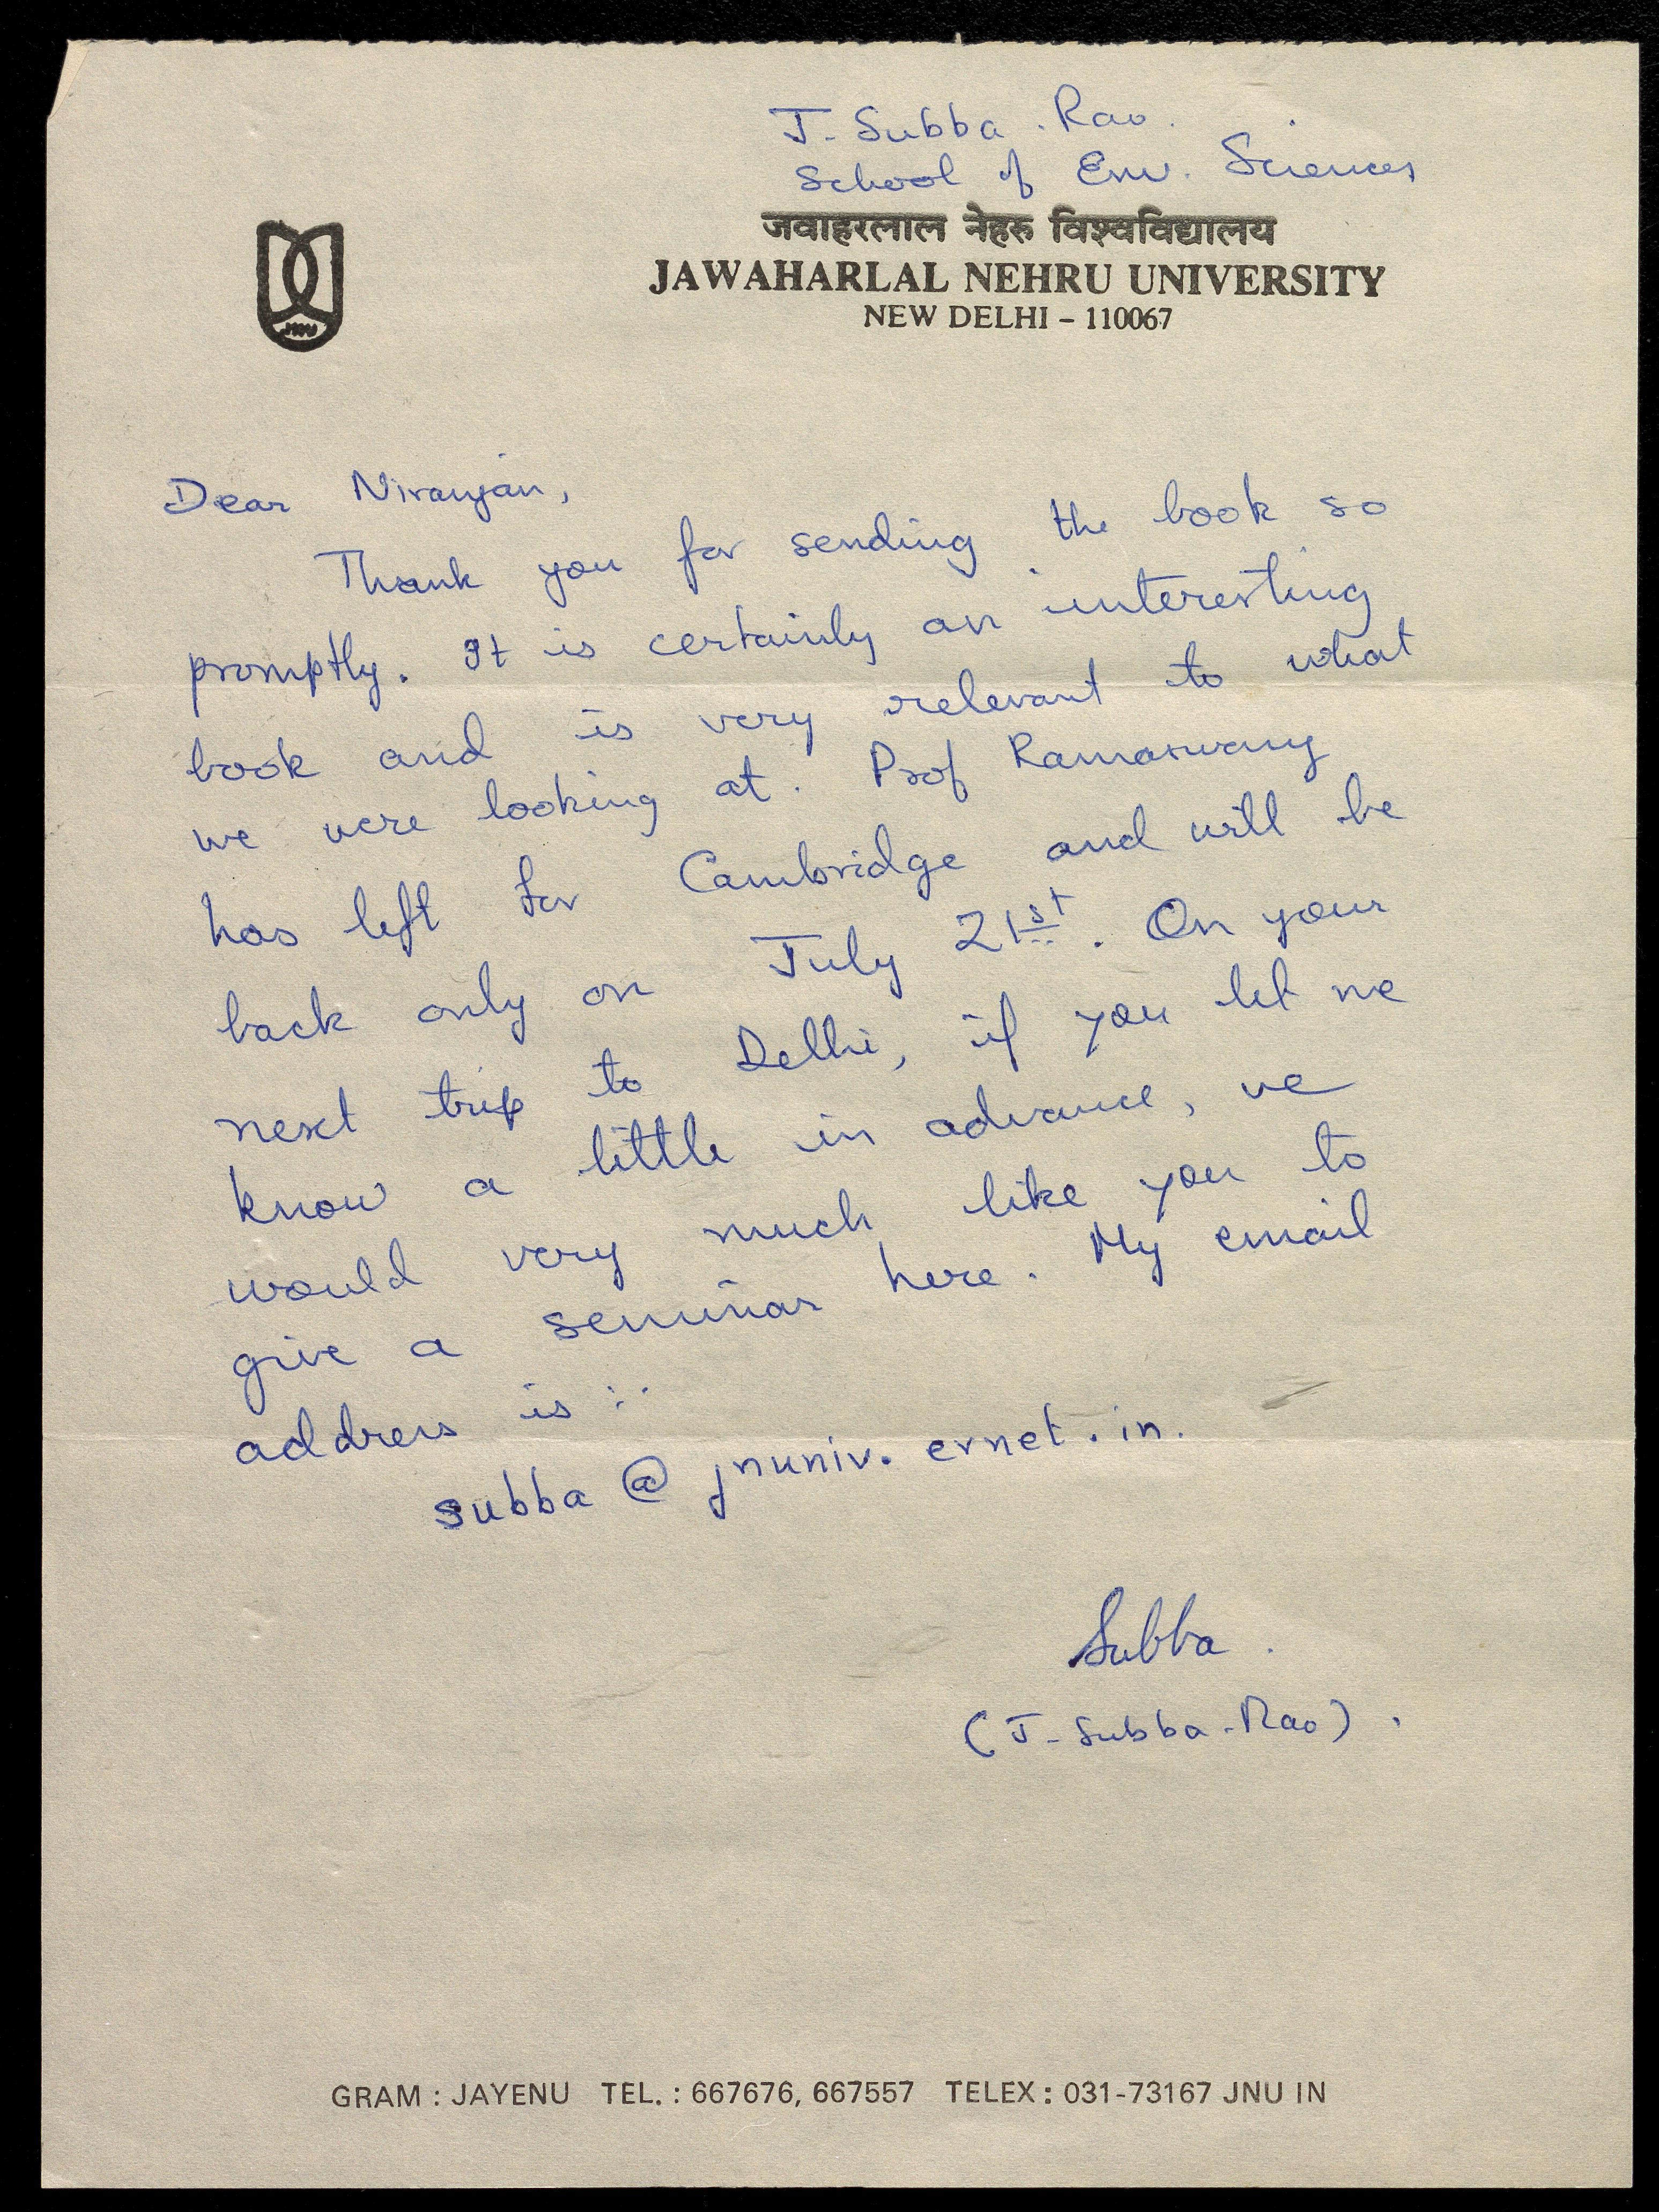 J. Subba. Rao.
School of Env. Sciences
जवाहरलाल नेहरु विश्वविद्यालय
JAWAHARLAL NEHRU UNIVERSITY
NEW DELHI – 110067
JNU
Dear Niranjan,
Thank you for sending the book so
promptly. It is certainly an interesting
book and is very relevant to what
we were looking at. Prof Ramaswamy
has left for Cambridge and will be
back only on July 21st. On your
next trip to Delhi, if you let me
know a little in advance, we
would very much like you to
give a seminar here. My email
address is :-
subba @ jnuniv. ernet. in.
Subba.
(J. Subba. Rao).
GRAM : JAYENU TEL. : 667676, 667557 TELEX : 031-73167 JNU IN